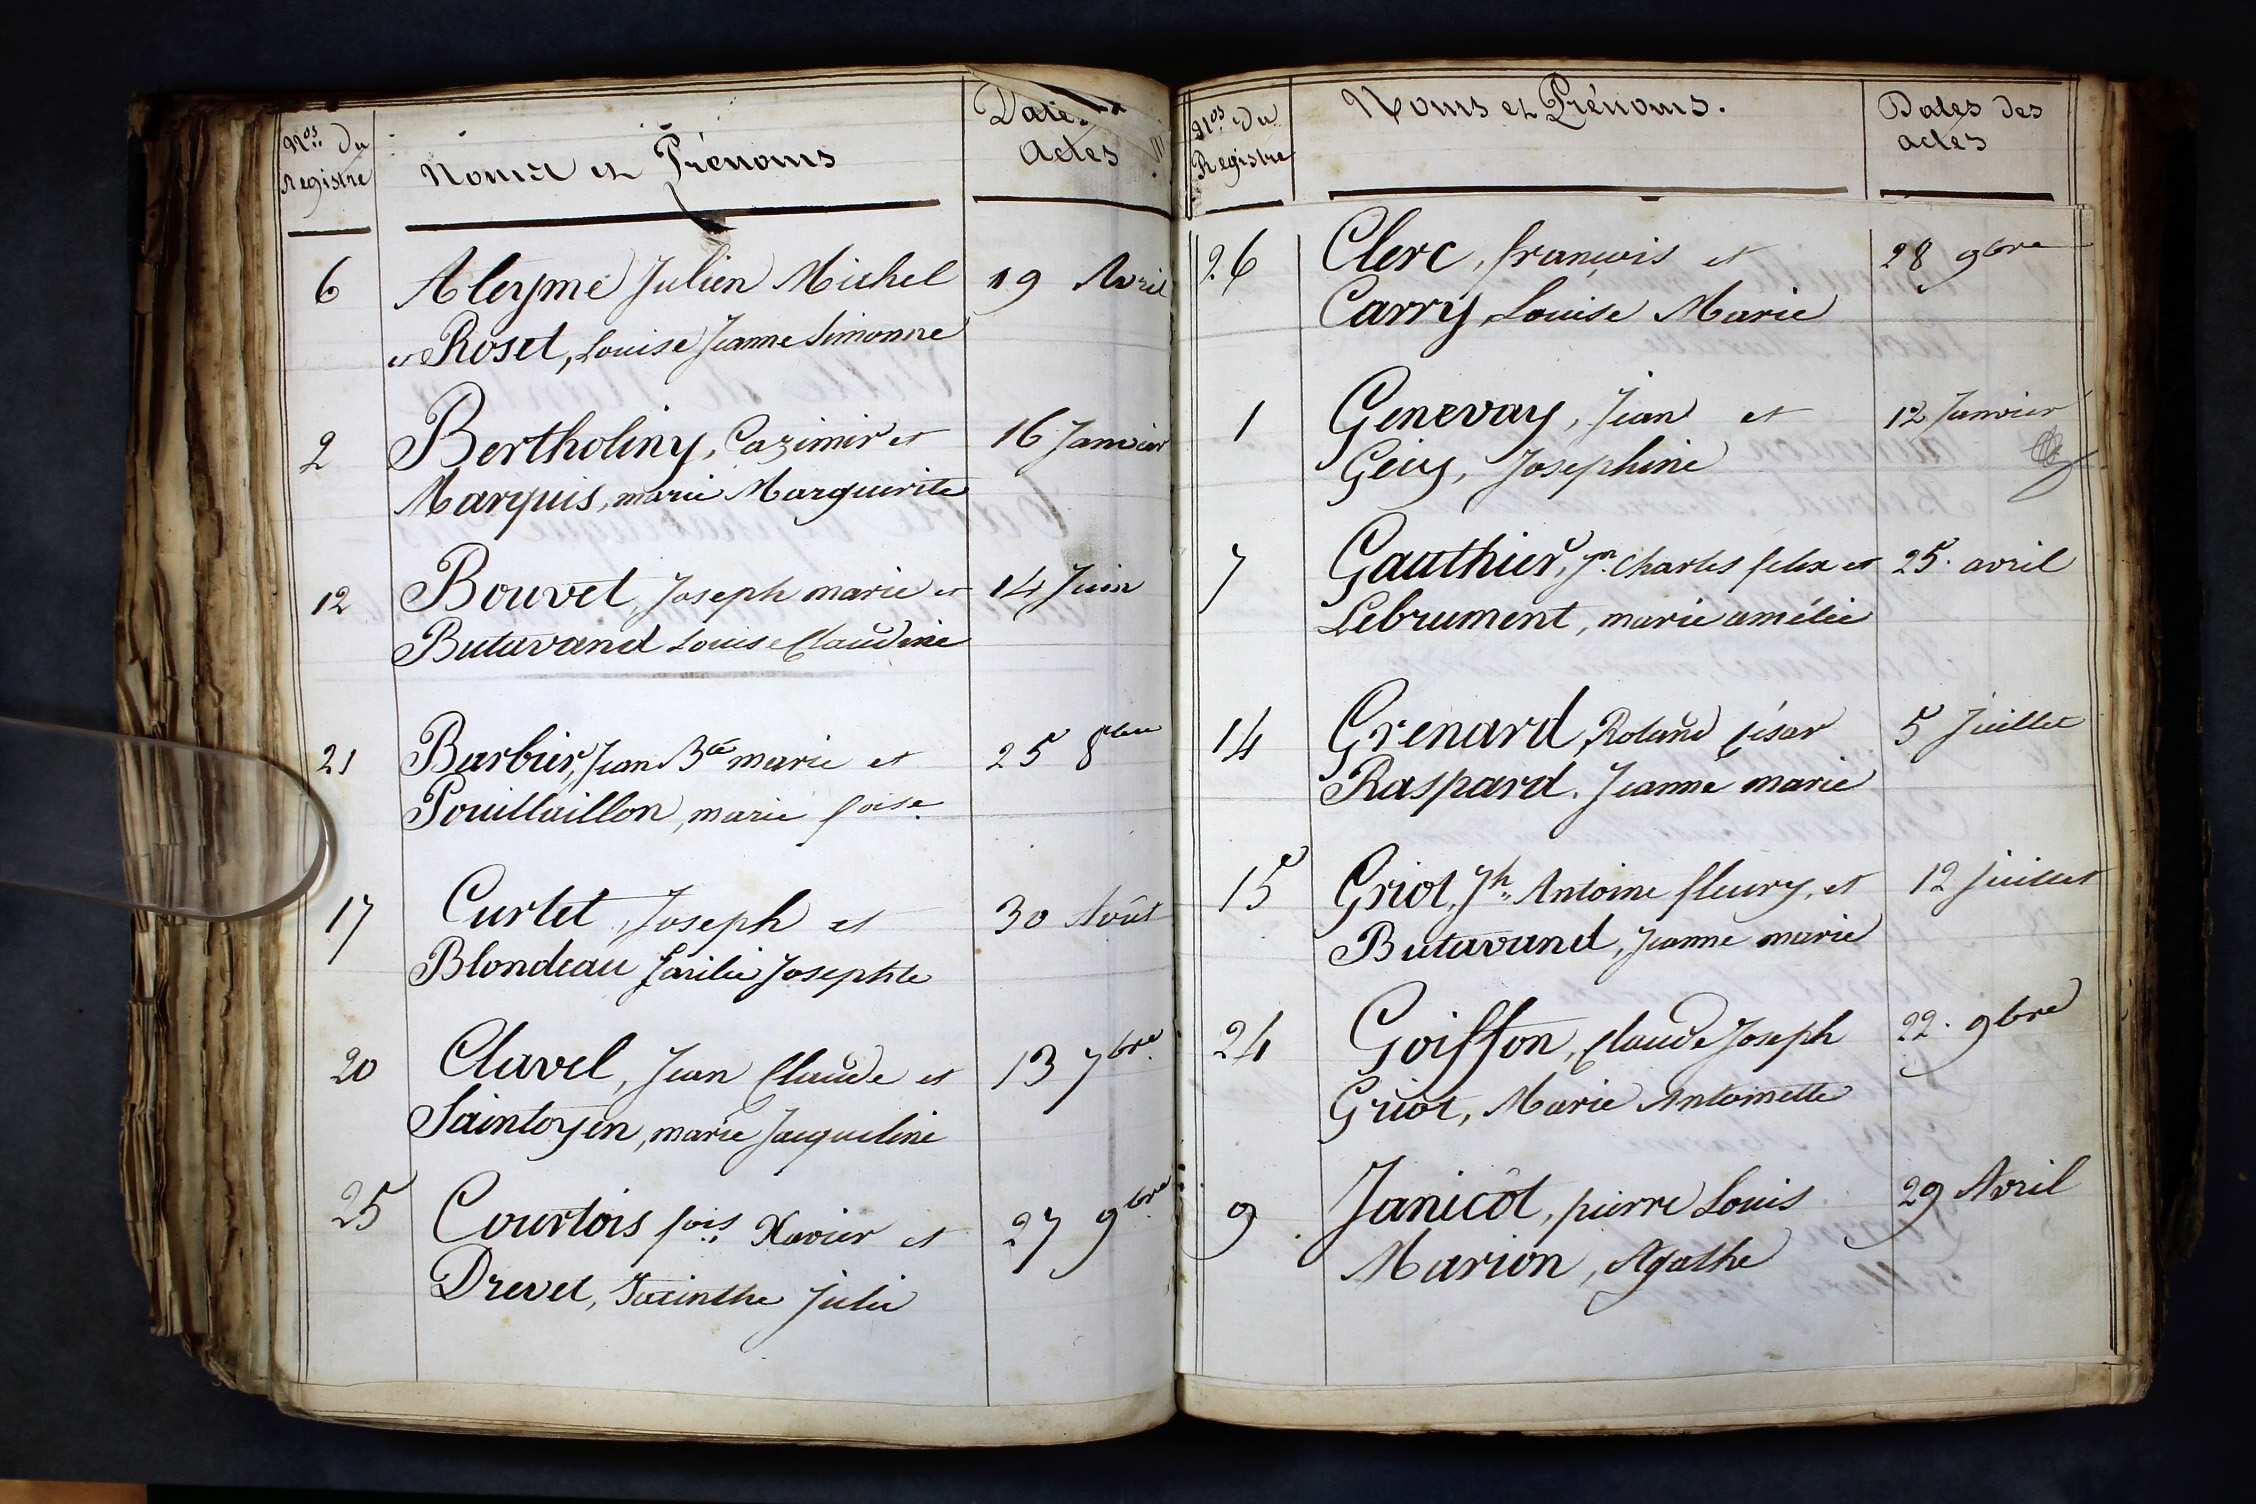 Nos du
Registre
Noms et Prénoms
Dates
Actes
6 Aleyme Julien Michel 19 Avril
et Roset, Louise Jeanne Simonne
2 Bertholiny, Cazimir et 16 Janvier
Marquis, marie Marguerite
12 Bouvet, Joseph marie et 14 Juin
Butavand Louise Claudine
21 Barbier, Jean Bte marie et 25 8bre
Pouillaillon, marie foise.
17 Curtet, Joseph et 30 Août
Blondeau Josephte
20 Clavel, Jean Claude et 13 7bre
Saintoyen, marie Jacqueline
25 Courtois fois Xavier et 27 9bre
Drevet, Jacinthe Julie
Nos du
Registre
Noms et Prénoms.
Dates des
actes
26 Clerc, françois et 28 9bre
Carry, Louise Marie
1 Genevay, Jean et 12 Janvier
Gécy, Josephine
7 Gauthier, Jn Charles felix et 25. avril
Lebrument, marie amélie
14 Grenard, Roland César 5 Juillet
Raspard. Jeanne marie
15 Griot, Jh Antoine fleury, et 12 juillet
Butavand, Jeanne marie
24 Goiffon, Claude Joseph 22. 9bre
Griot, Marie Antoinette
9 Janicôt, pierre Louis 29 Avril
Marion, Agathe